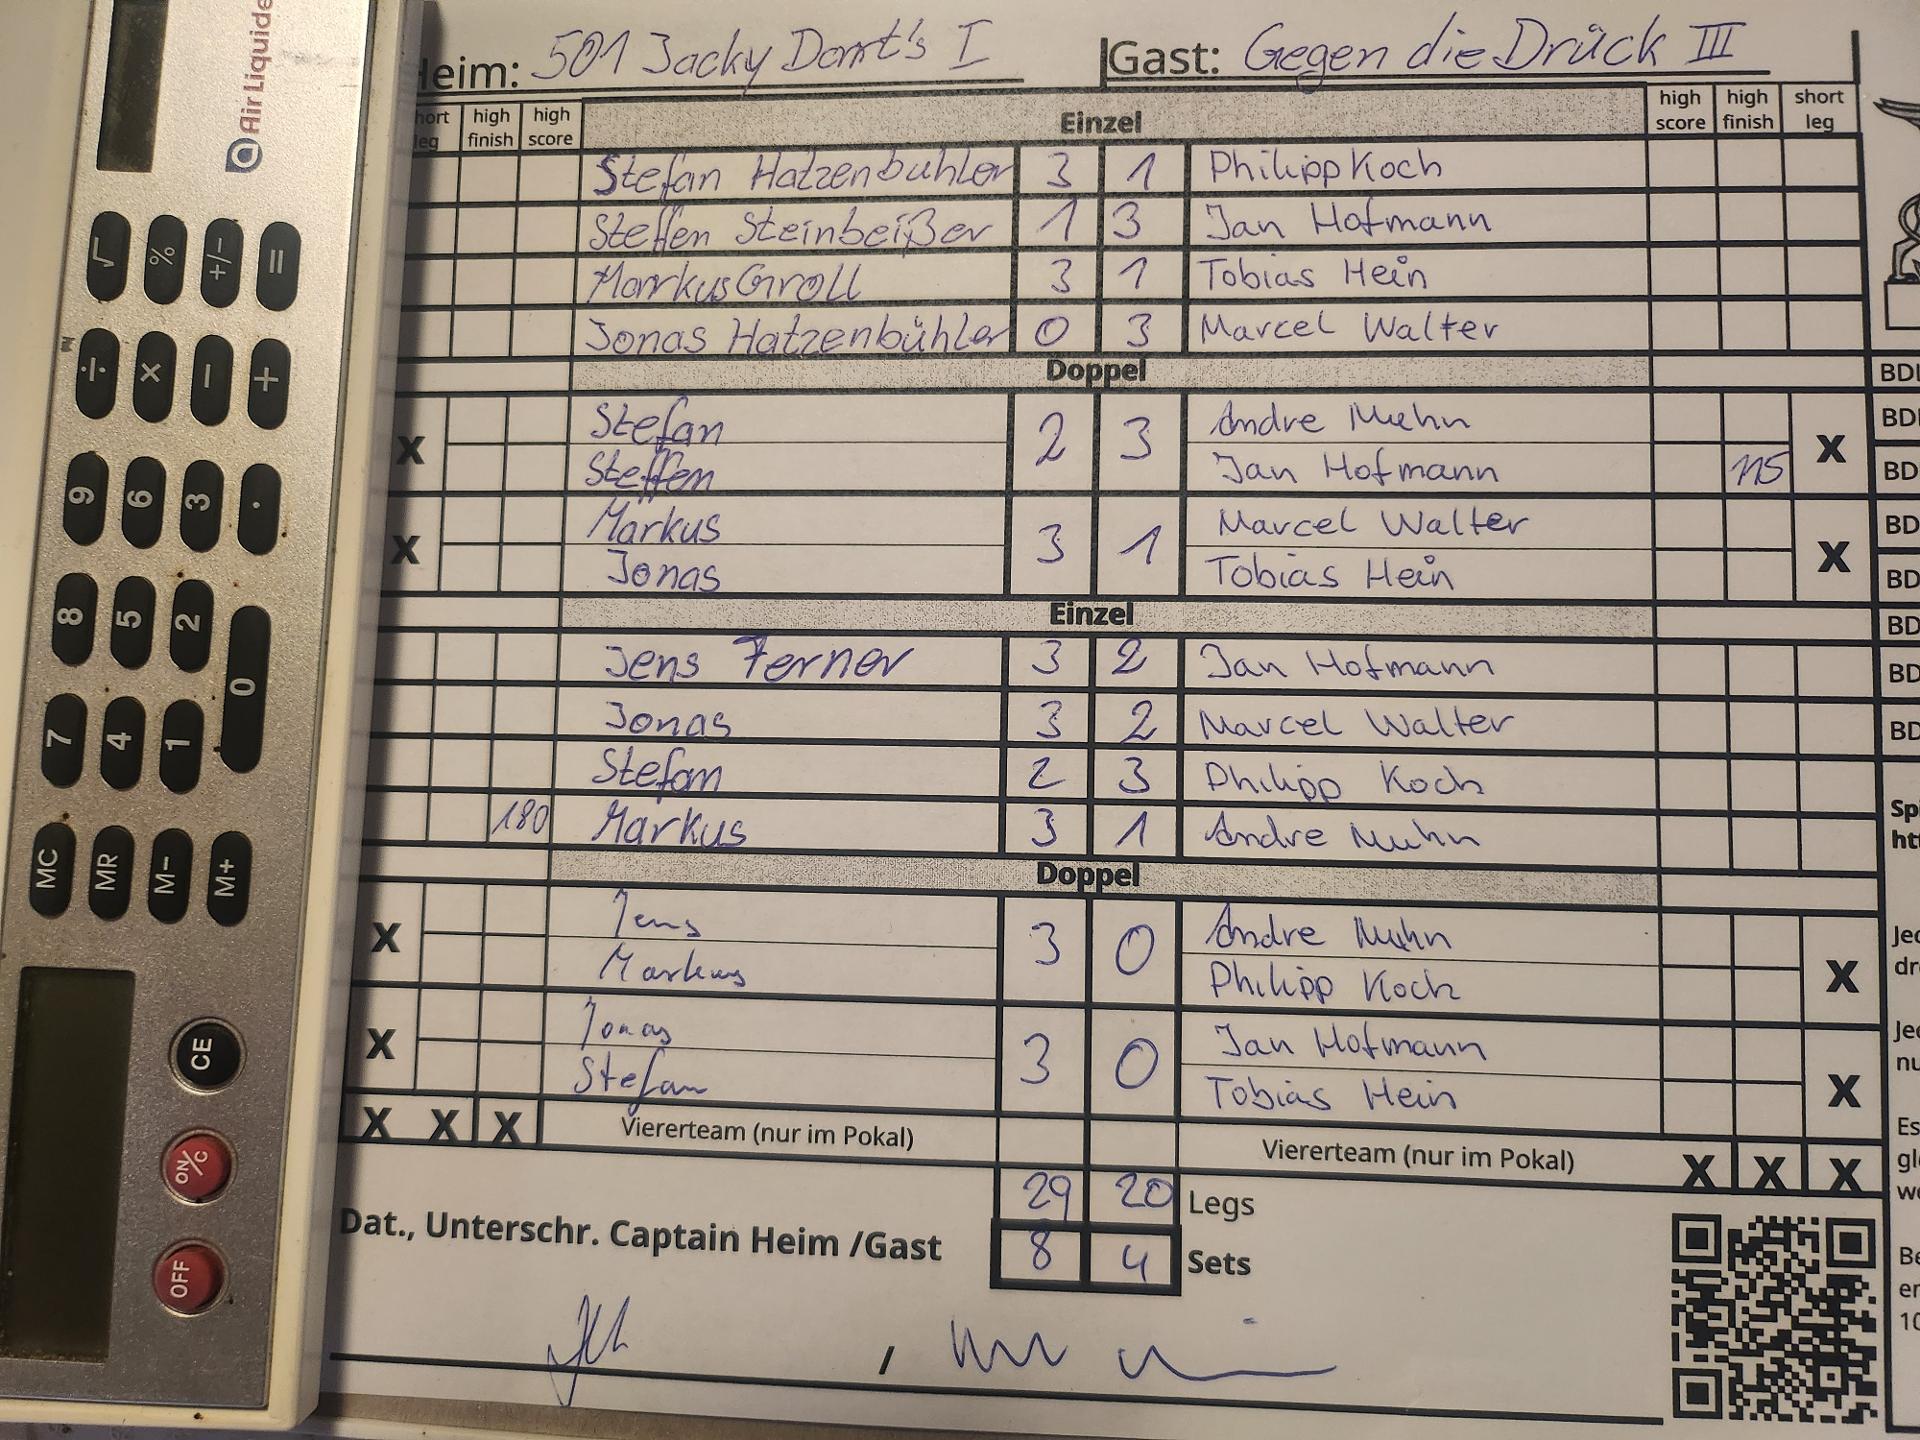 Air Liquide
√ % +/- =
÷ × − +
9 6 3 .
8 5 2 0
7 4 1
MC MR M− M+
CE
ON/C
OFF
Heim: 501 Jacky Dart's I Gast: Gegen die Drück III
short leg high finish high score Einzel high score high finish short leg
Stefan Hatzenbühler 3 1 Philipp Koch
Steffen Steinbeißer 1 3 Jan Hofmann
Markus Groll 3 1 Tobias Hein
Jonas Hatzenbühler 0 3 Marcel Walter
Doppel
X Stefan 2 3 Andre Muhn X
Steffen Jan Hofmann 115
X Markus 3 1 Marcel Walter X
Jonas Tobias Hein
Einzel
Jens Ferner 3 2 Jan Hofmann
Jonas 3 2 Marcel Walter
Stefan 2 3 Philipp Koch
180 Markus 3 1 Andre Muhn
Doppel
X Jens 3 0 Andre Muhn X
Markus Philipp Koch
X Jonas 3 0 Jan Hofmann X
Stefan Tobias Hein
X X X Viererteam (nur im Pokal) Viererteam (nur im Pokal) X X X
29 20 Legs
Dat., Unterschr. Captain Heim /Gast 8 4 Sets
/